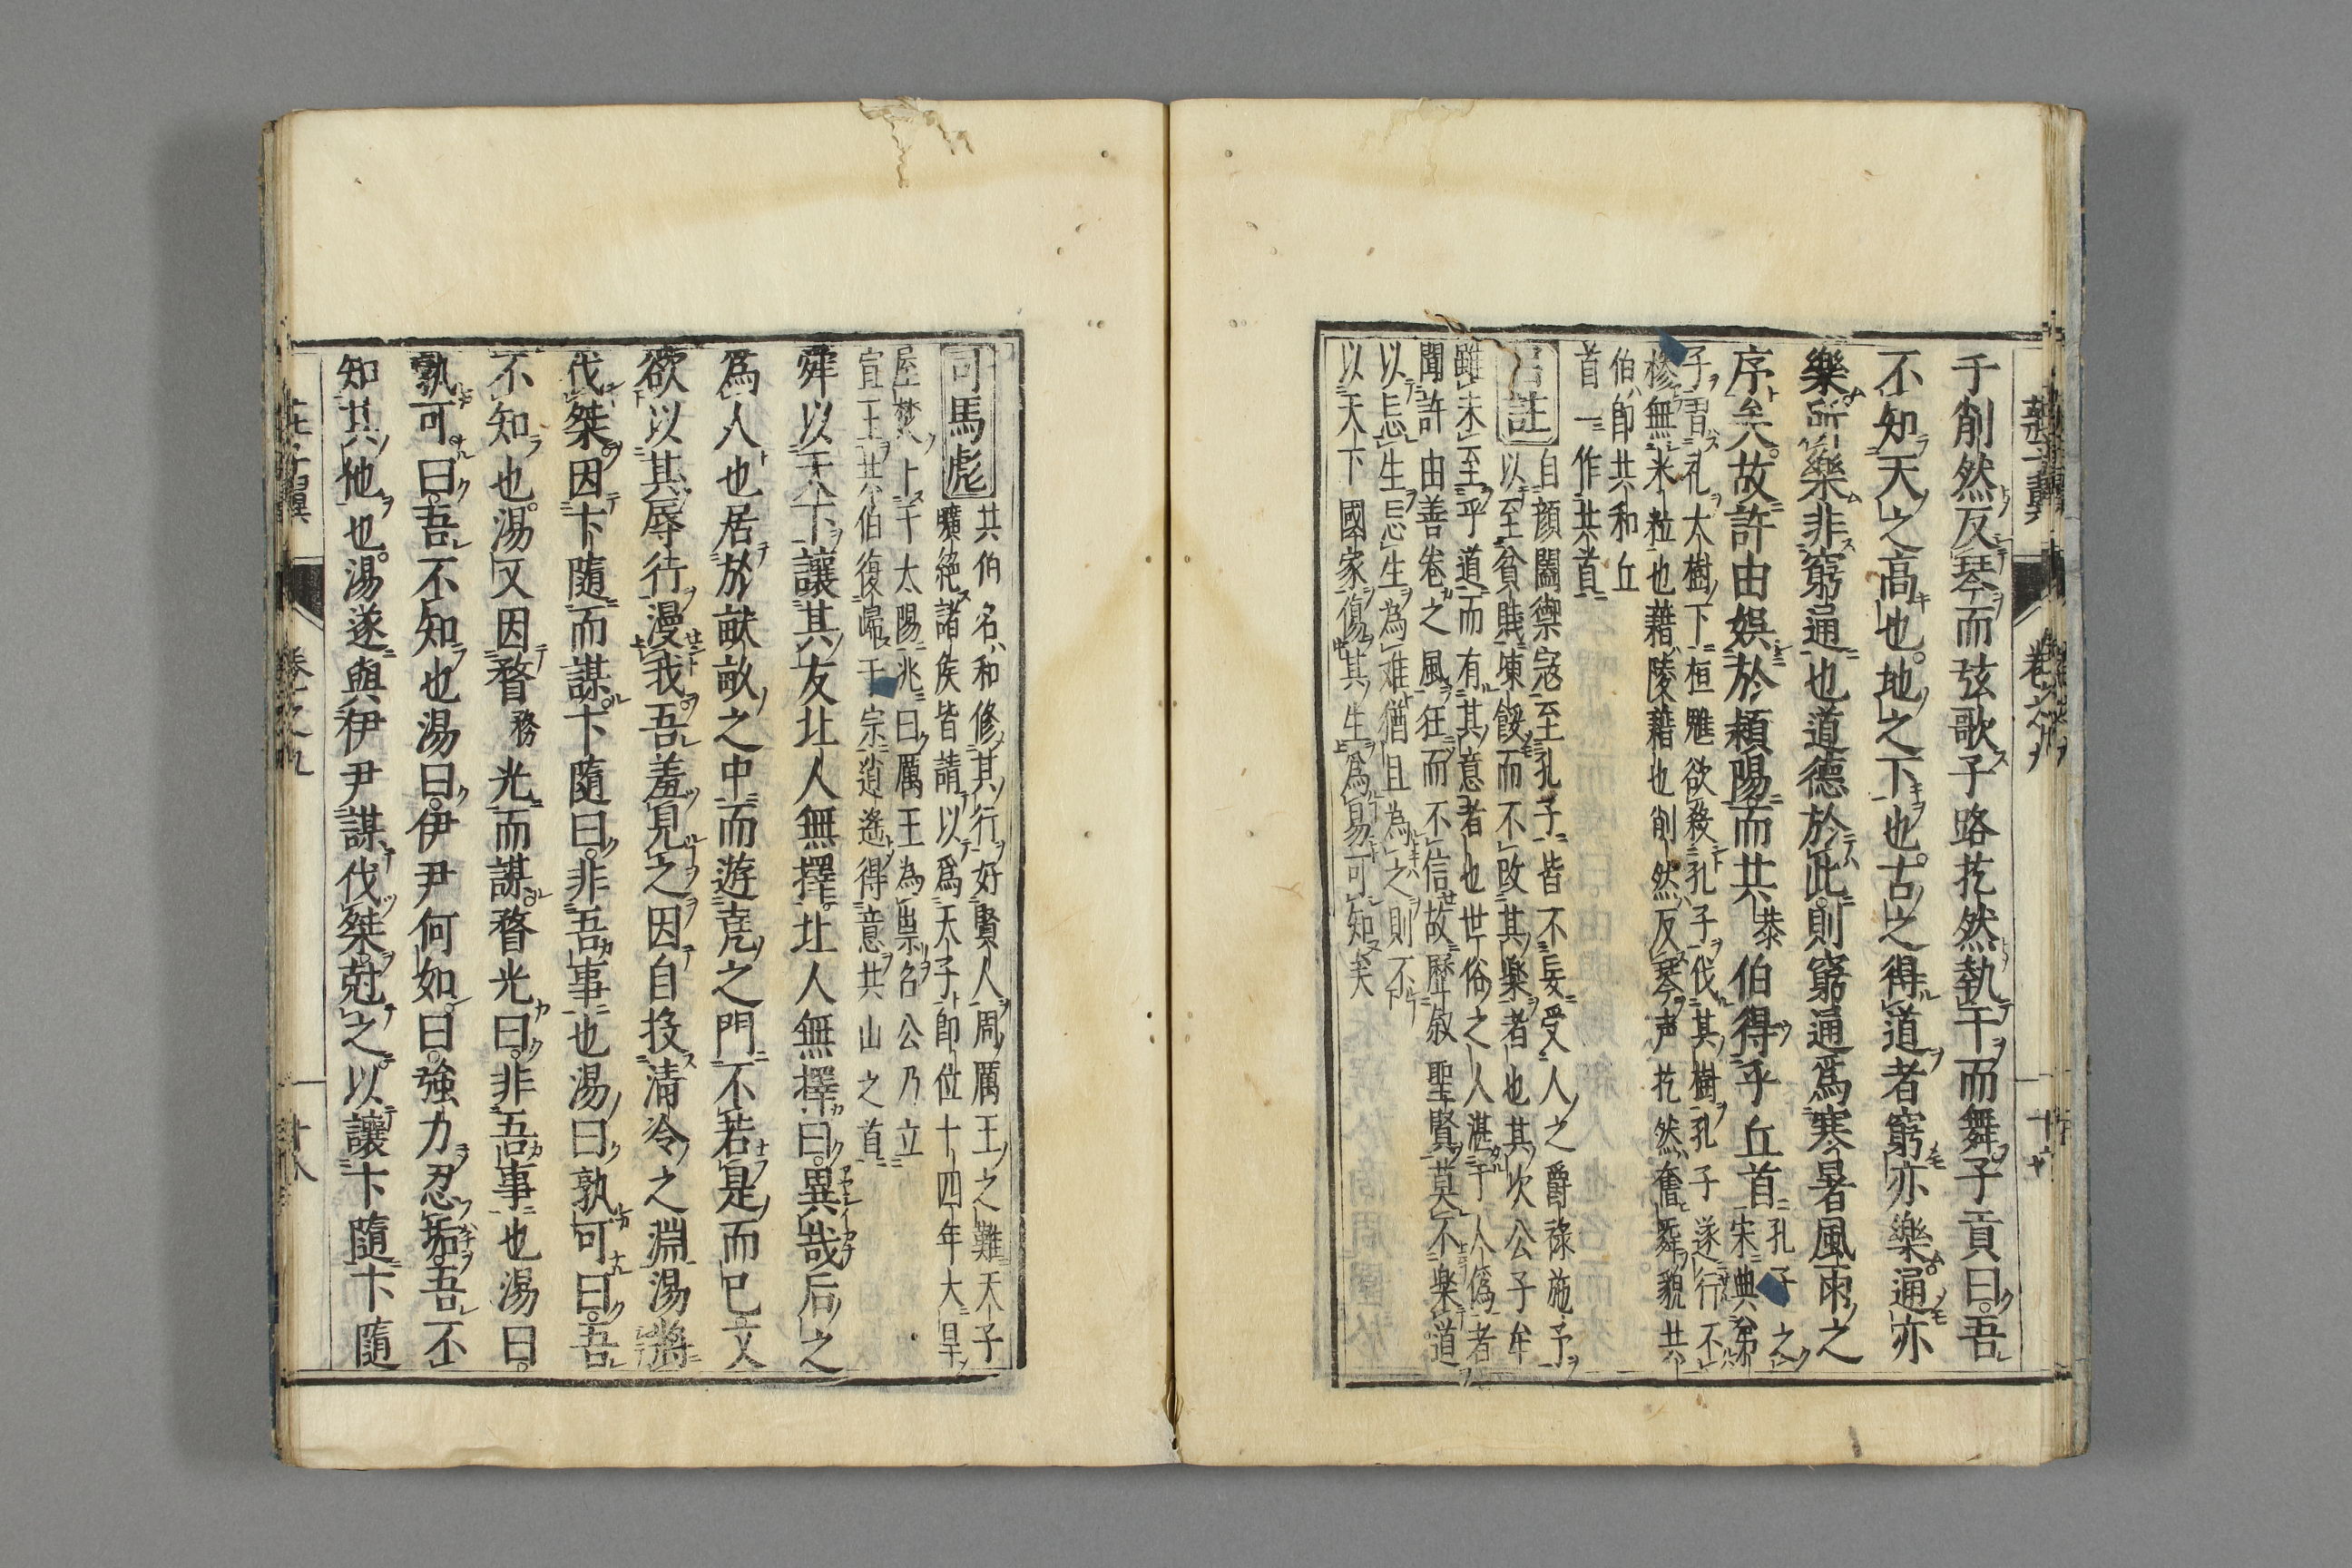 子削然反琴而弦歌子路扢然執干而舞子貢曰吾
不知天之高也地之下也古之得道者窮亦樂通亦
樂所樂非窮通也道德於此則窮通爲寒暑風雨之
序矣故許由娯於頴陽而共恭伯得乎丘首
孔子之
宋典弟
子習礼大樹下桓魋欲殺孔子伐其樹孔子遂行不
糝無米粒也藉陵藉也削然反琴声扢然奮舞貌共
伯即共和丘
首一作共首
呂註
自顔闔禦寇至孔子皆不妄受人之爵祿施予
以至貧賎凍餒而不改其楽者也其次公子牟
雖未至乎道而有其意者也世俗之人湛于人偽者
聞許由善卷之風狂而不信故歴叙聖賢莫不楽道
以忘生忘生為难猶且為之則不
以天下國家傷其生爲易可知矣
司馬彪
共伯名和修其行好賢人周厲王之難天子
曠絶諸侯皆請以爲天子即位十四年大旱
屋焚卜于太陽兆曰厲王為祟召公乃立
宣王共伯復歸于宗逍遙得意共山之首
舜以天下讓其友北人無擇北人無擇曰異哉后之
爲人也居於畎畝之中而遊堯之門不若是而已又
欲以其辱行漫我吾羞見之因自投清冷之淵湯將
伐桀因卞隨而謀卞隨曰非吾事也湯曰孰可曰吾
不知也湯又因瞀務光而謀瞀光曰非吾事也湯曰
孰可曰吾不知也湯曰伊尹何如曰強力忍垢吾不
知其他也湯遂與伊尹謀伐桀尅之以讓卞隨卞隨
卷之九
十八